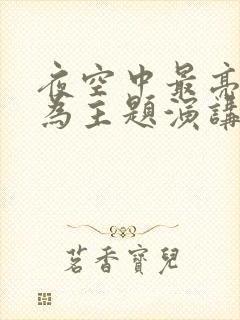 夜空中最亮
為主題演講
茗香寶兒